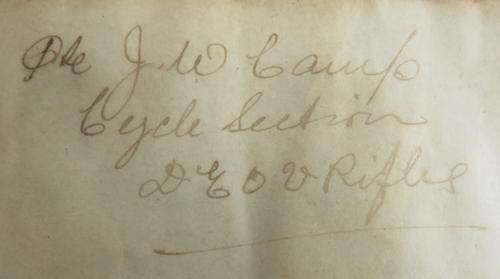 Pte J. W. Camp
Cycle Section
D E O V Rifles